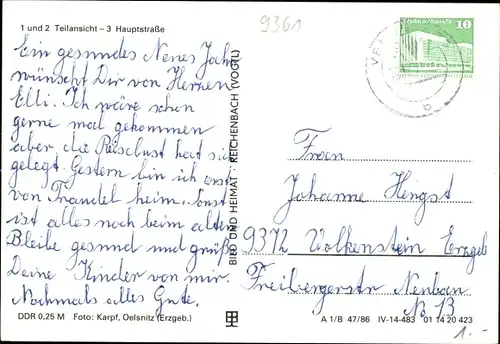 1 und 2 Teilansicht – 3 Hauptstraße
9361
10
Ein gesundes Neues Jahr
wünscht Dir von Herzen
Elli. Ich wäre schon
gerne mal gekommen
aber die Reiselust hat sich
gelegt. Gestern bin ich erst
von heim. Sonst
ist alles noch beim alten
Bleibe gesund und grüße
Deine Kinder von mir.
Nochmals alles Gute.
BILD UND HEIMAT · REICHENBACH (VOGTL)
Frau
Johanne Hengst
9372 Wolkenstein Erzgeb
Freibergerstr Neubau
N. 13
DDR 0,25 M Foto: Karpf, Oelsnitz (Erzgeb.)
A 1/B 47/86 IV-14-483 01 14 20 423
1.-